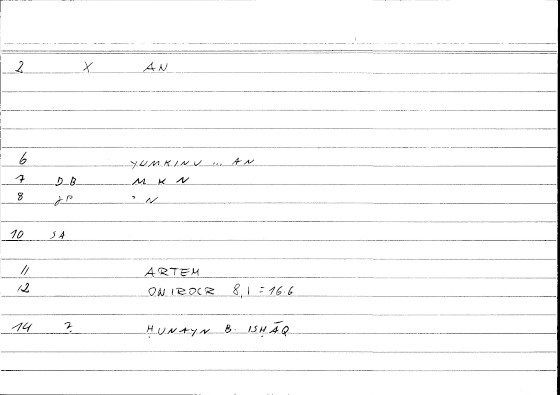 2 X AN
6 YUMKINU ... AN
7 DB M K N
8 JP ʾ N
10 SA
11 ARTEM
12 ONIROCR 8,1 = 16.6
14 2 ḤUNAYN B. ISḤĀQ